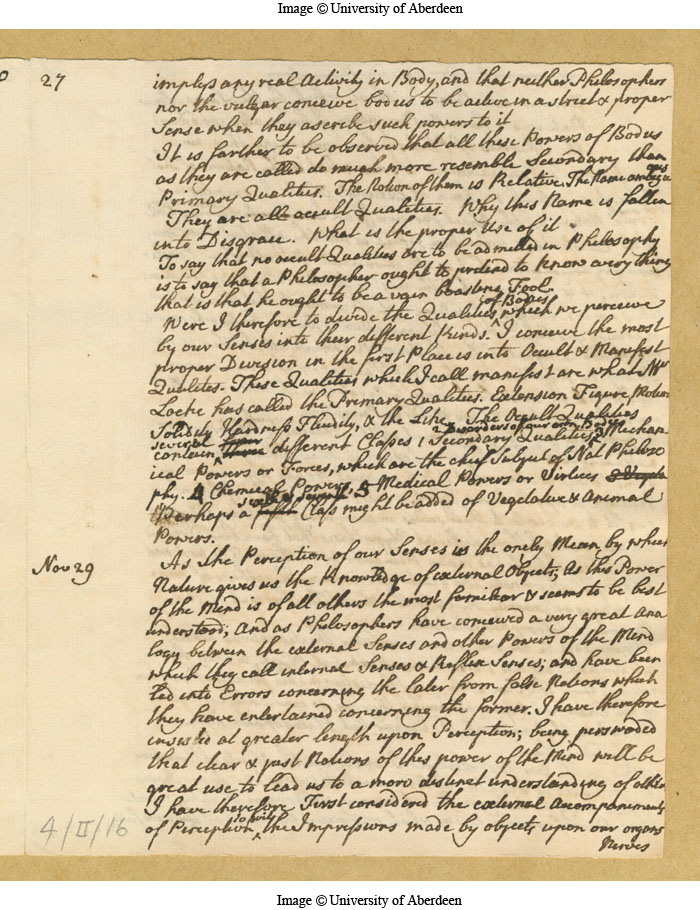 Image © University of Aberdeen
27
implys any real Activity in Body, and that neither Philosophers
nor the vulgar conceive bodies to be active in a strict & proper
Sense when they ascribe such powers to it
It is farther to be observed that all these Powers of Bodies
as they are called do much more resemble Secondary than
Primary Qualities. The Notion of them is Relative. The Name ambiguous
They are all occult Qualities. Why this Name is fallen
into Disgrace. What is the proper Use of it
To say that no occult Qualities are to be admitted in Philosophy
is to say that a Philosopher ought to pretend to know every thing
that is that he ought to be a vain boasting Fool.
Were I therefore to divide the Qualities of Bodies which we perceive
by our Senses into their different Kinds. I conceive the most
proper Division in the first Place is into Occult & Manifest
Qualities. These Qualities which I call manifest are what Mr
Locke has called the Primary Qualities. Extension Figure, Motion
Solidity Hardness Fluidity, & the Like. The Occult Qualities
contain several different Classes 1 Secondary Qualities 2 Disorders of our own Body Mechan
ical Powers or Forces, which are the chief Subject of Nat Philoso
phy. Chemical Powers, 5 Medical Powers or Virtues
Perhaps a Class might be added of Vegetative & Animal
Powers.
Nov 29
As the Perception of our Senses is the onely Mean, by which
Nature gives us the Knowledge of external Objects; As this Power
of the Mind is of all others the most familiar & seems to be best
understood; And as Philosophers have conceived a very great Ana
logy between the external Senses and other Powers of the Mind
which they call internal Senses & Reflex Senses; and have been
led into Errors concerning the later from false Notions which
they have entertained concerning the former. I have therefore
insisted at greater length upon Perception; being perswaded
that clear & just Notions of this power of the Mind will be
great use to lead us to a more distinct understanding of others
I have therefore First considered the external Accompaniments
of Perception, to wit the Impressions made by objects upon our organs
Nerves
4/II/16
Image © University of Aberdeen